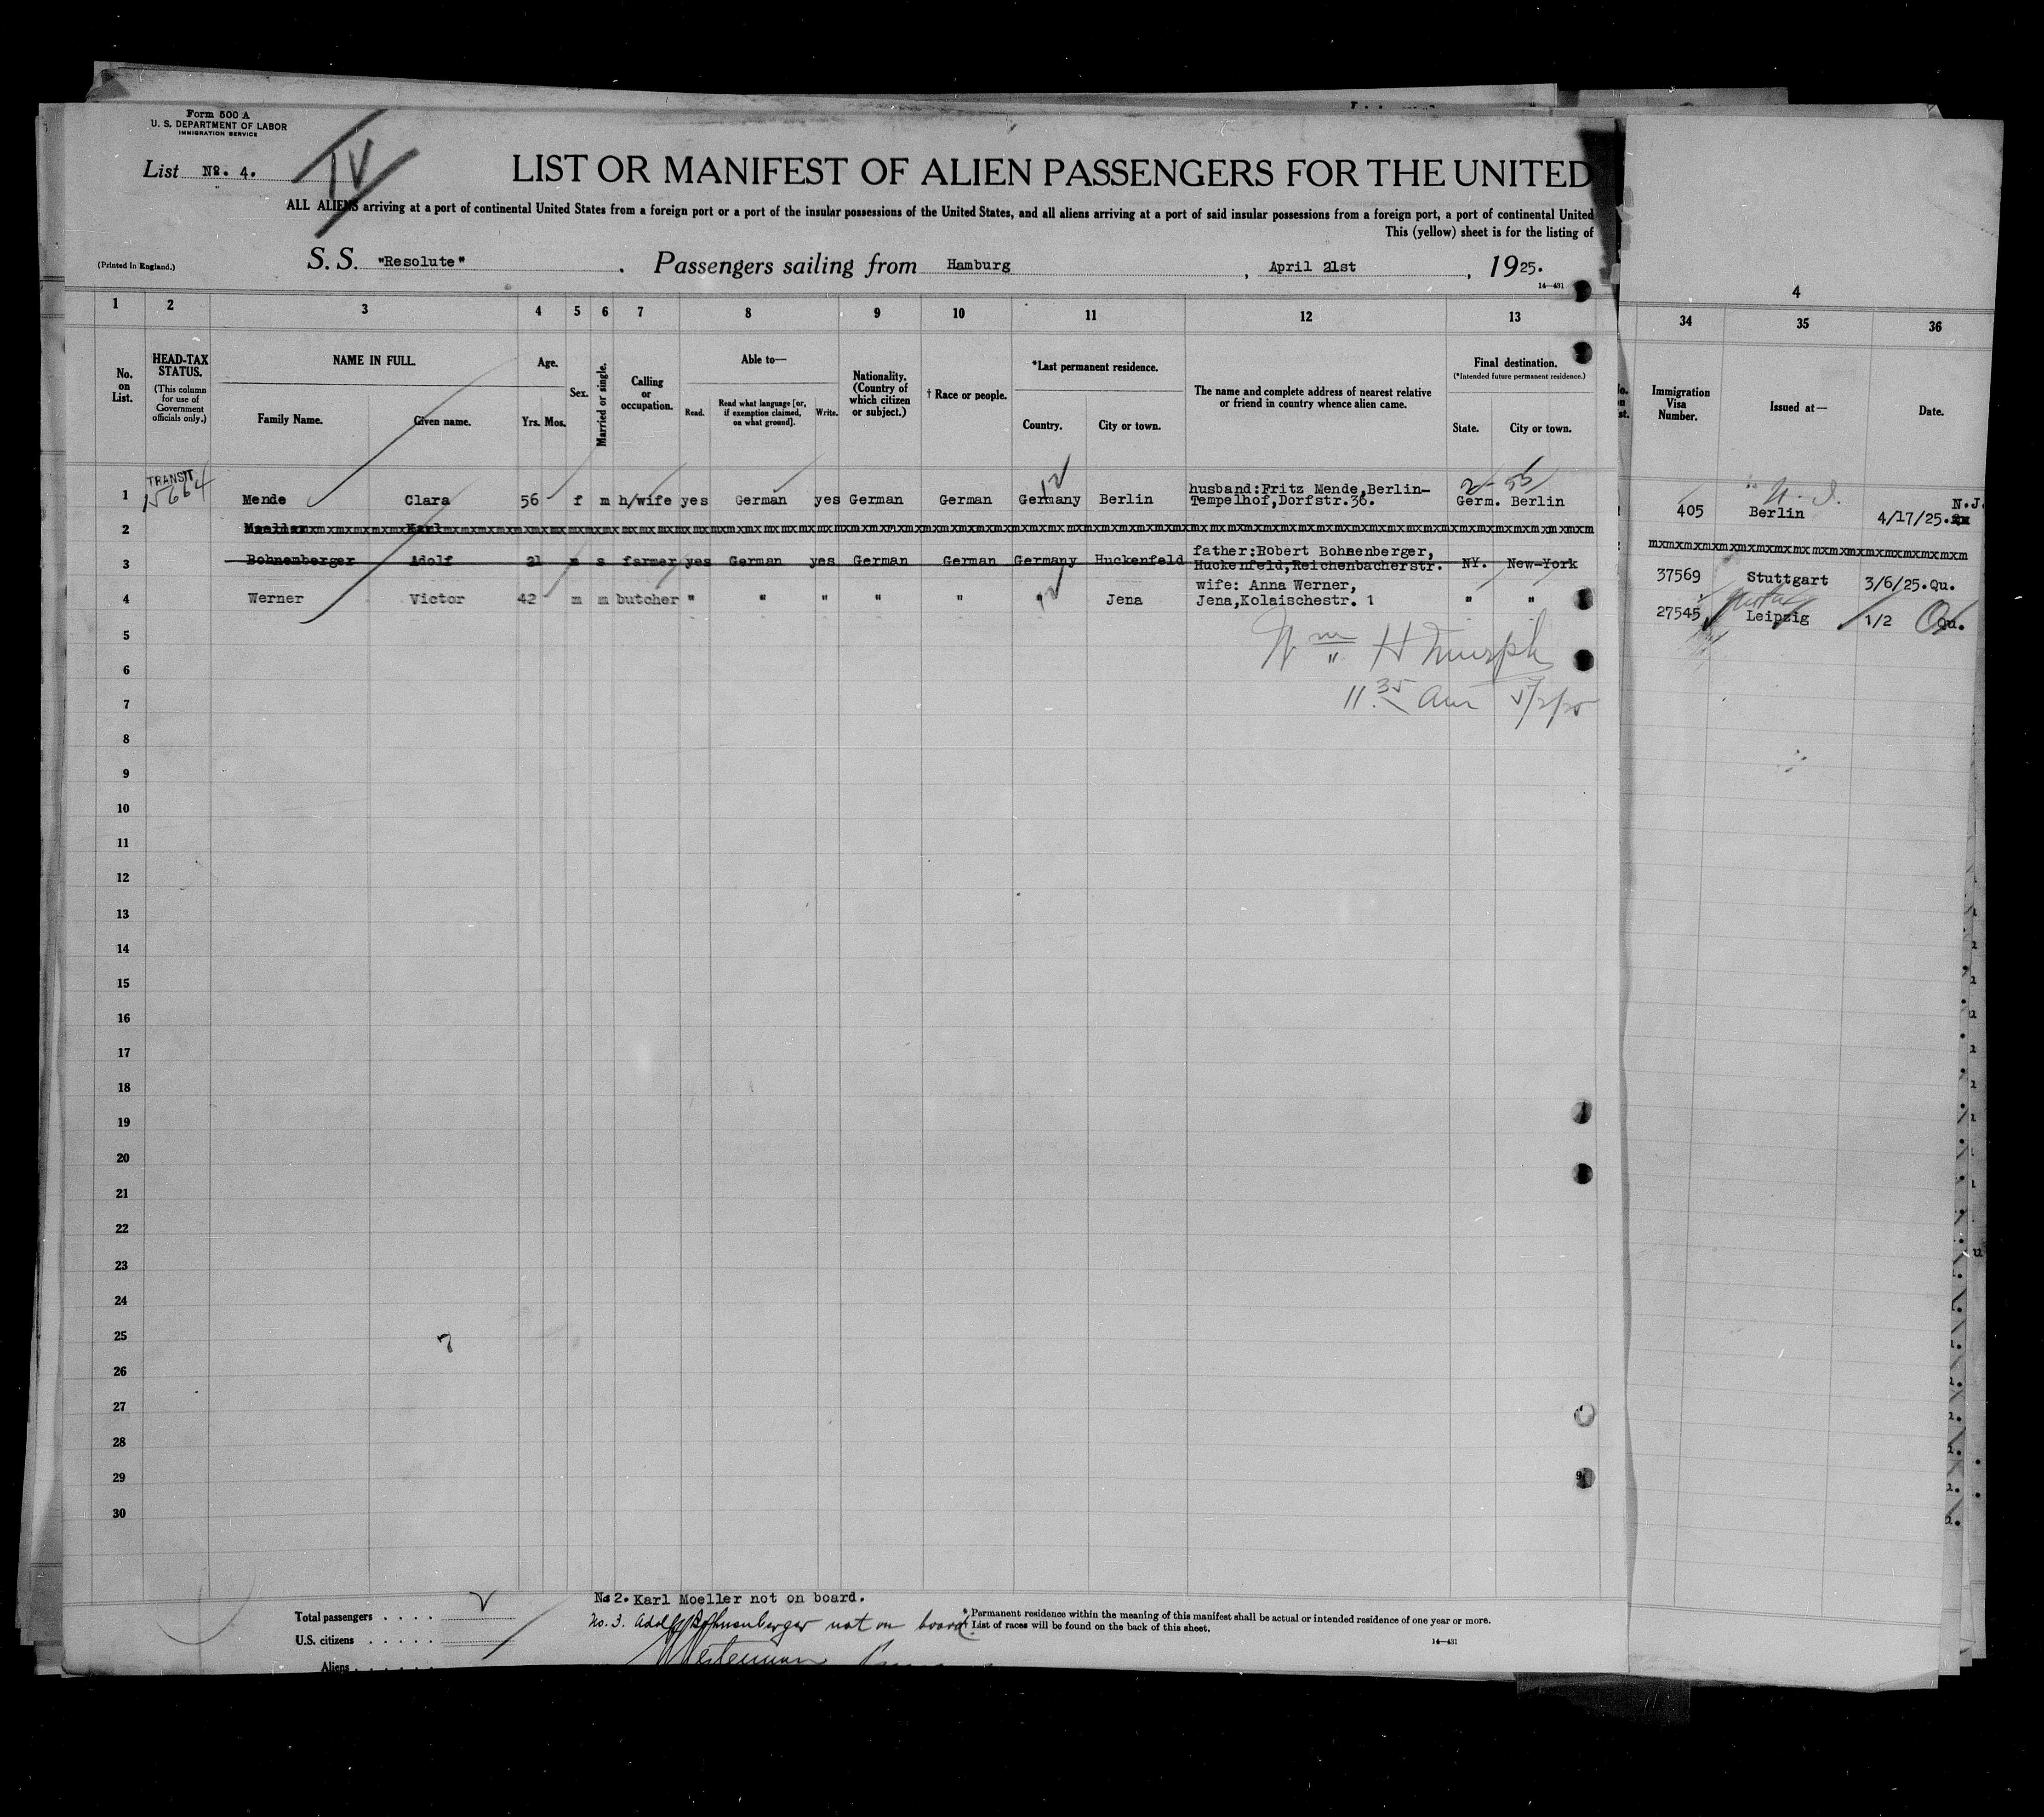 Form 500 A
U. S. DEPARTMENT OF LABOR
IMMIGRATION SERVICE
List No. 4.
IV
LIST OR MANIFEST OF ALIEN PASSENGERS FOR THE UNITED
ALL ALIENS arriving at a port of continental United States from a foreign port or a port of the insular possessions of the United States, and all aliens arriving at a port of said insular possessions from a foreign port, a port of continental United
This (yellow) sheet is for the listing of
(Printed in England.)
S. S. "Resolute" . Passengers sailing from Hamburg , April 21st , 1925.
14—431
4
1 2 3 4 5 6 7 8 9 10 11 12 13 34 35 36
No. on List.
HEAD-TAX STATUS.
(This column for use of Government officials only.)
NAME IN FULL.
Family Name. Given name.
Age.
Yrs. Mos.
Sex.
Married or single.
Calling or occupation.
Able to—
Read. Read what language [or, if exemption claimed, on what ground]. Write.
Nationality. (Country of which citizen or subject.)
† Race or people.
*Last permanent residence.
Country. City or town.
The name and complete address of nearest relative or friend in country whence alien came.
Final destination.
(*Intended future permanent residence.)
State. City or town.
Immigration Visa Number.
Issued at—
Date.
TRANSIT
1 Mende Clara 56 f m h/wife yes German yes German German Germany Berlin husband:Fritz Mende,Berlin-
Tempelhof,Dorfstr.36. Germ. Berlin 405 Berlin 4/17/25. N.J.
2 Moeller Karl
3 Bohnenberger Adolf 21 m s farmer yes German yes German German Germany Huckenfeld father:Robert Bohnenberger,
Huckenfeld,Reichenbacherstr. NY. New-York 37569 Stuttgart 3/6/25.Qu.
4 Werner Victor 42 m m butcher " " " " " " Jena wife: Anna Werner,
Jena,Kolaischestr. 1 " " 27545 Leipzig 1/2 Qu.
5
Wm H Murph
6
11.35 am 5/2/25
7
8
9
10
11
12
13
14
15
16
17
18
19
20
21
22
23
24
25
26
27
28
29
30
No2. Karl Moeller not on board.
No. 3. Adolf Bohnenberger not on board.
Total passengers . . . .
U.S. citizens . . . . .
Aliens . . . . . .
* Permanent residence within the meaning of this manifest shall be actual or intended residence of one year or more.
† List of races will be found on the back of this sheet.
14—431